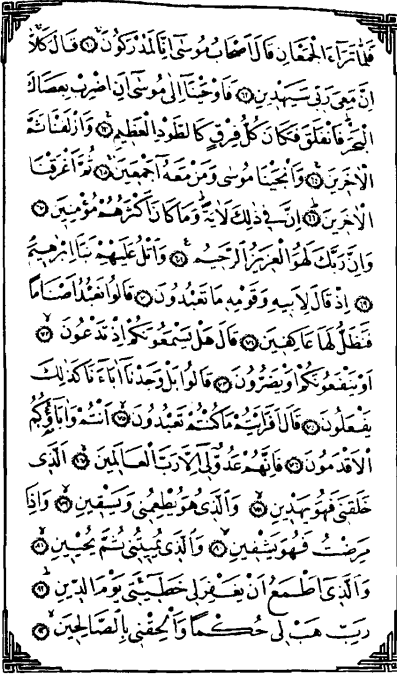 فَلَمَّا تَرَاءَ الْجَمْعَانِ قَالَ اَصْحَابُ مُوسٰٓى اِنَّا لَمُدْرَكُونَۚ ﴿٦١﴾ قَالَ كَلَّاۚ
اِنَّ مَعِيَ رَبّ۪ي سَيَهْد۪ينِ ﴿٦٢﴾ فَاَوْحَيْنَٓا اِلٰى مُوسٰٓى اَنِ اضْرِبْ بِعَصَاكَ
الْبَحْرَۜ فَانْفَلَقَ فَكَانَ كُلُّ فِرْقٍ كَالطَّوْدِ الْعَظ۪يمِۚ ﴿٦٣﴾ وَاَزْلَفْنَا ثَمَّ
الْاٰخَر۪ينَۚ ﴿٦٤﴾ وَاَنْجَيْنَا مُوسٰى وَمَنْ مَعَهُٓ اَجْمَع۪ينَۚ ﴿٦٥﴾ ثُمَّ اَغْرَقْنَا
الْاٰخَر۪ينَۜ ﴿٦٦﴾ اِنَّ ف۪ي ذٰلِكَ لَاٰيَةًۜ وَمَا كَانَ اَكْثَرُهُمْ مُؤْمِن۪ينَ ﴿٦٧﴾
وَاِنَّ رَبَّكَ لَهُوَ الْعَز۪يزُ الرَّح۪يمُ۟ ﴿٦٨﴾ وَاتْلُ عَلَيْهِمْ نَبَاَ اِبْرٰه۪يمَۢ
﴿٦٩﴾ اِذْ قَالَ لِاَب۪يهِ وَقَوْمِه۪ مَا تَعْبُدُونَ ﴿٧٠﴾ قَالُوا نَعْبُدُ اَصْنَامًا
فَنَظَلُّ لَهَا عَاكِف۪ينَ ﴿٧١﴾ قَالَ هَلْ يَسْمَعُونَكُمْ اِذْ تَدْعُونَۙ ﴿٧٢﴾
اَوْ يَنْفَعُونَكُمْ اَوْ يَضُرُّونَ ﴿٧٣﴾ قَالُوا بَلْ وَجَدْنَٓا اٰبَٓاءَنَا كَذٰلِكَ
يَفْعَلُونَ ﴿٧٤﴾ قَالَ اَفَرَاَيْتُمْ مَا كُنْتُمْ تَعْبُدُونَۙ ﴿٧٥﴾ اَنْتُمْ وَاٰبَٓاؤُ۬كُمُ
الْاَقْدَمُونَۘ ﴿٧٦﴾ فَاِنَّهُمْ عَدُوٌّ ل۪ٓي اِلَّا رَبَّ الْعَالَم۪ينَۙ ﴿٧٧﴾ اَلَّذ۪ي
خَلَقَن۪ي فَهُوَ يَهْد۪ينِۙ ﴿٧٨﴾ وَالَّذ۪ي هُوَ يُطْعِمُن۪ي وَيَسْق۪ينِۙ ﴿٧٩﴾ وَاِذَا
مَرِضْتُ فَهُوَ يَشْف۪ينِۖ ﴿٨٠﴾ وَالَّذ۪ي يُم۪يتُن۪ي ثُمَّ يُحْي۪ينِۙ ﴿٨١﴾
وَالَّذ۪ٓي اَطْمَعُ اَنْ يَغْفِرَ ل۪ي خَط۪ٓيـَٔت۪ي يَوْمَ الدّ۪ينِۜ ﴿٨٢﴾
رَبِّ هَبْ ل۪ي حُكْمًا وَاَلْحِقْن۪ي بِالصَّالِح۪ينَۙ ﴿٨٣﴾